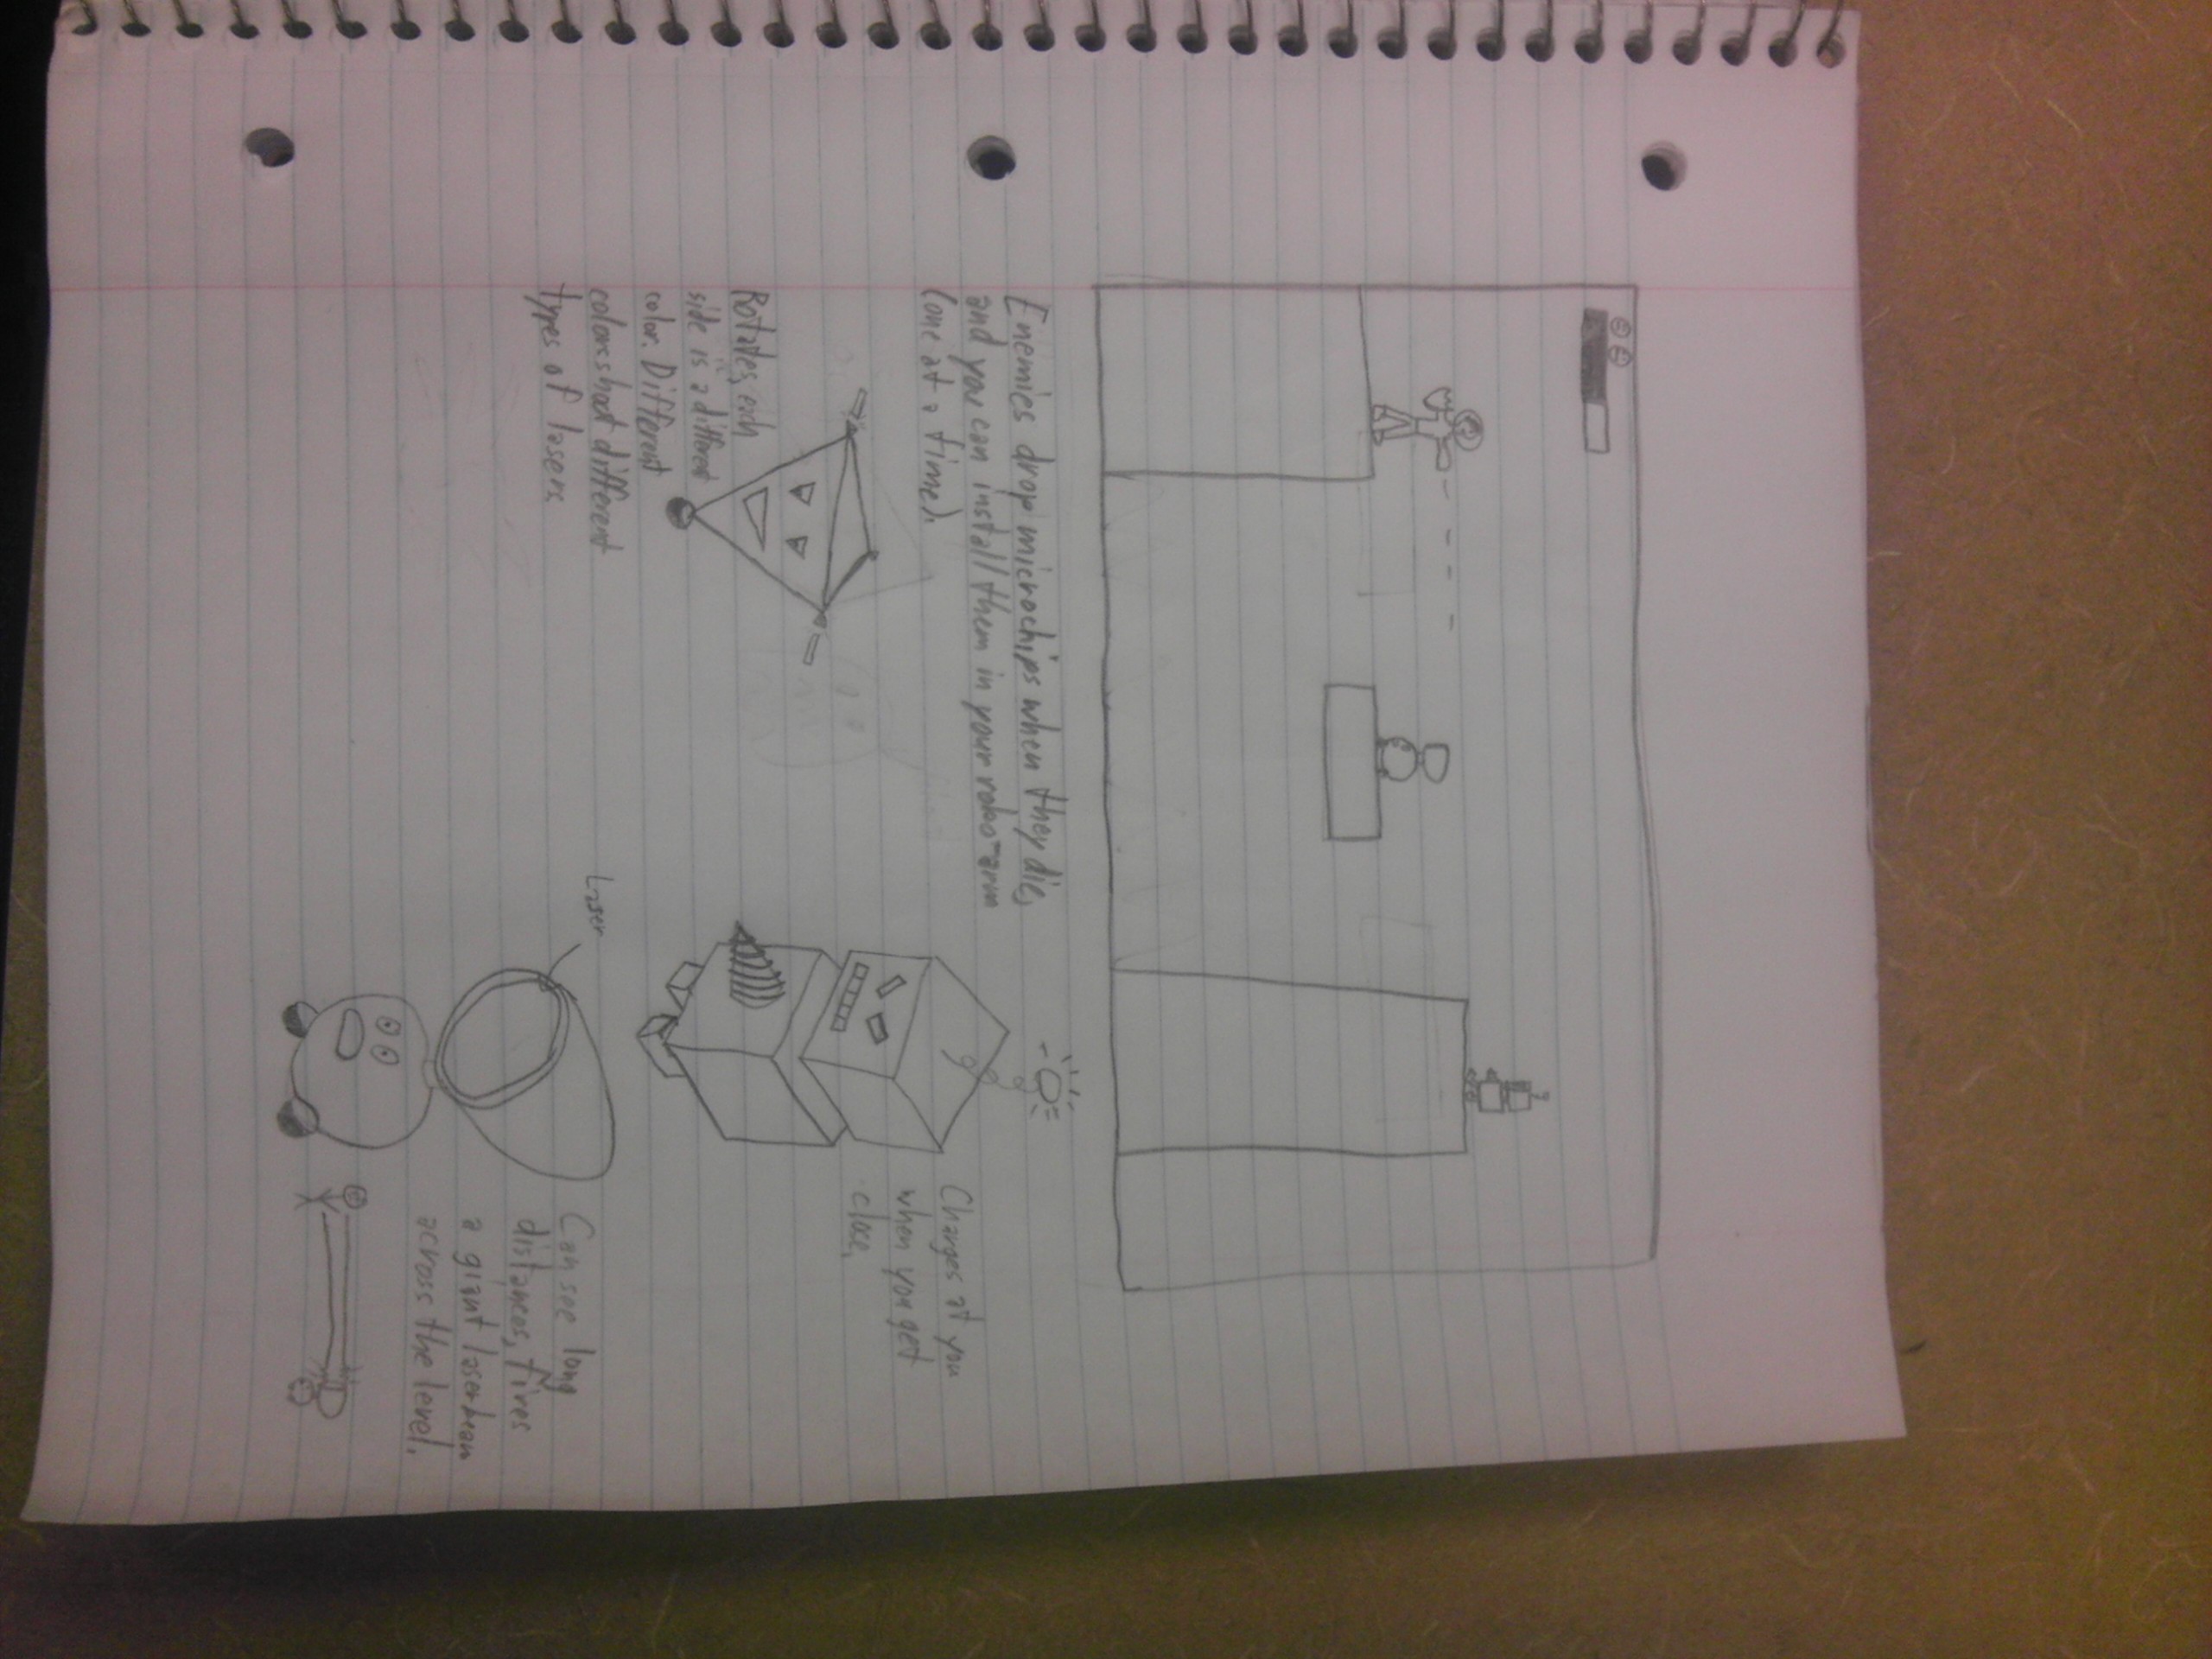 Enemies drop microchips when they die,
and you can install them in your robo-arm
(one at a time).
Rotates, each
side is a different
color. Different
colors shoot different
types of lasers
Charges at you
when you get
close.
Laser
Can see long
distances, fires
a giant laser beam
across the level.